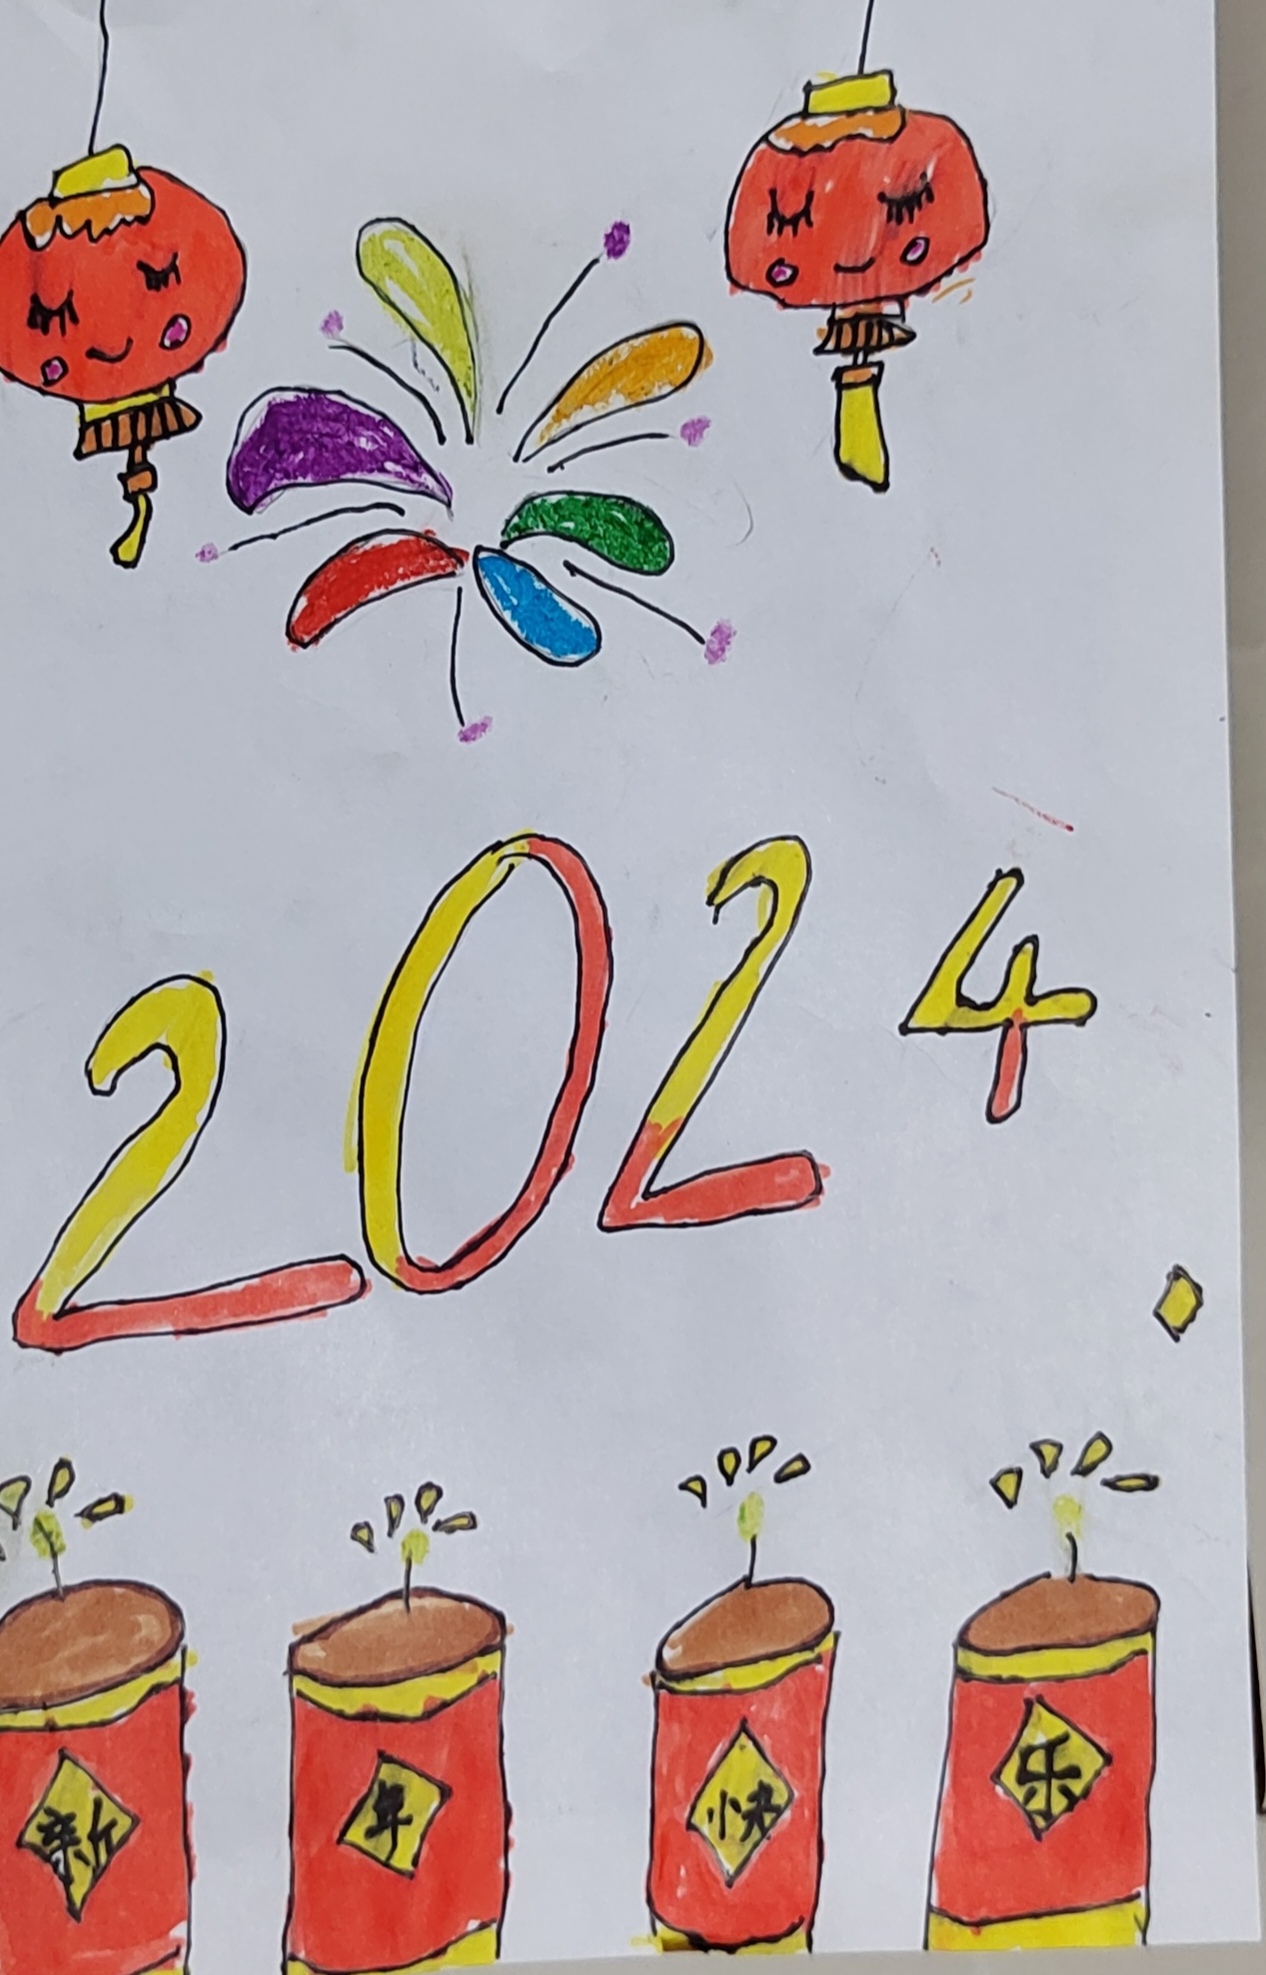 2024
新年快乐